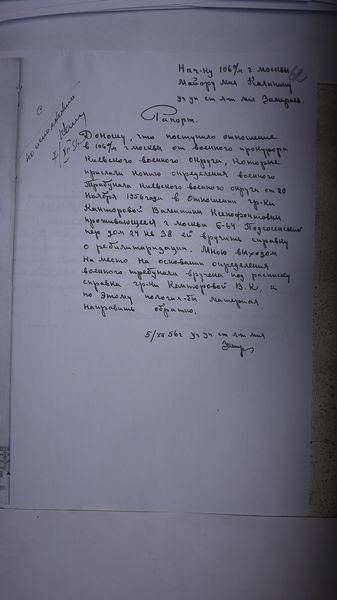 Нач-ку 106 о/м г москвы
62
Майору мил Калинину
уч уп ст л-т мил
С
исполнено
Рапорт.
Доношу, что поступило отношение
в 106 о/м г москвы от военного прокурора
Киевского военного округа, которые
прислали копию определения военого
Трибунала Киевского военного округа от 20
Ноября 1956 года в отношении гр-ки
Канторовой Валентины Ксенофонтовны
проживающеей г москвы Б-64 Подсосенский
пер дом 24 кв 38 ей вручить справку
о ребилитиридации. Мною выходом
на место на основании определения
военого трибунала вручена под расписку
справка гр-ки Канторовой В.К, а
по этому пологал-бы материал
направить обратно.
5/XII 56г уч уп ст л-т мил